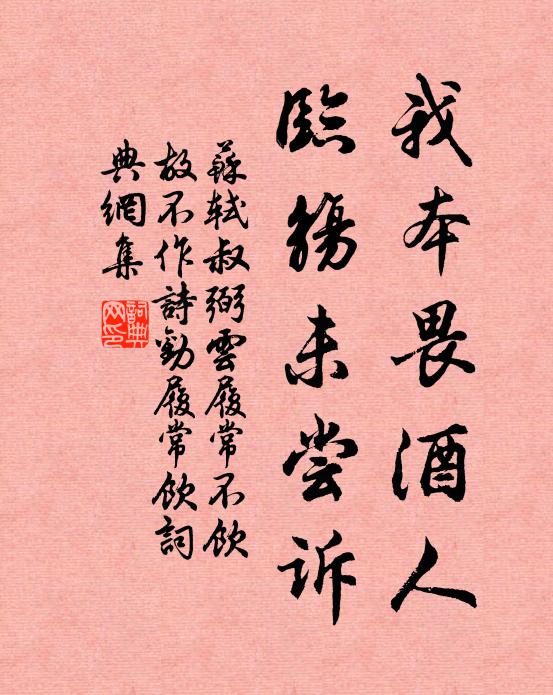 我本畏酒人
臨觴未尝訴
蘇軾叔弼雲履常不飲
故不作詩勸履常飲詞
典網集
詞典
网印